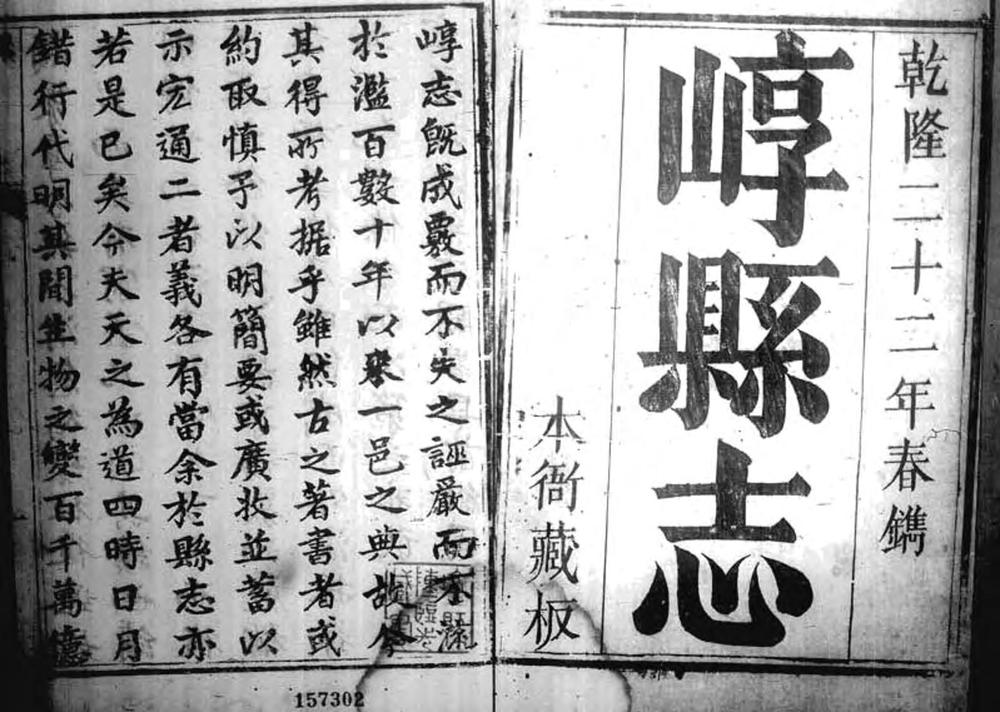 乾隆二十二年春鐫
崞縣志
本衙藏板
崞志旣成覈而不失之誣嚴而不
於濫百數十年以來一邑之典故今
其得所考据乎雖然古之著書者或
約取慎予以明簡要或廣收並蓄以
示宏通二者義各有當余於縣志亦
若是已矣今夫天之為道四時日月
錯行代明其間生物之變百千萬億
157302